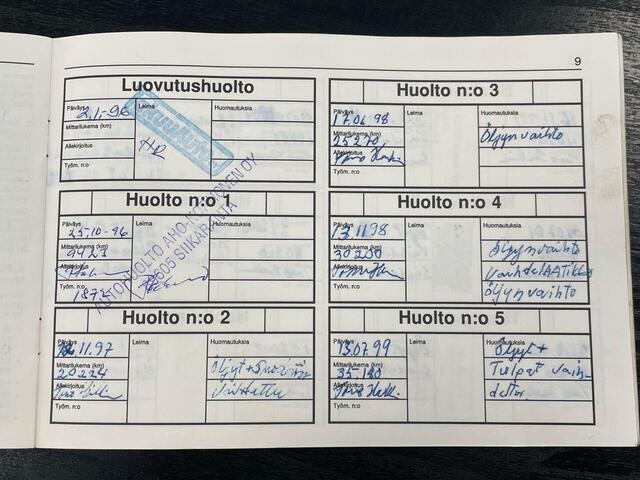 9
Luovutushuolto
Päiväys
2.1.-96
Leima
Huomautuksia
Mittarilukema (km)
Allekirjoitus
HR
Työm. n:o
Huolto n:o 1
Päiväys
25.10-96
Leima
Huomautuksia
Mittarilukema (km)
9423
Allekirjoitus
Työm. n:o
1873
AUTOHUOLTO AHO
OY
SIIKARANTA
Huolto n:o 2
Päiväys
.11.97
Leima
Huomautuksia
Mittarilukema (km)
20224
Allekirjoitus
Öljyt +
Vaihdettu
Työm. n:o
Huolto n:o 3
Päiväys
17.06 98
Leima
Huomautuksia
Mittarilukema (km)
25270
Öljynvaihto
Allekirjoitus
Työm. n:o
Huolto n:o 4
Päiväys
13.11.98
Leima
Huomautuksia
Mittarilukema (km)
30200
Öljynvaihto
Allekirjoitus
öljynvaihto
Työm. n:o
Huolto n:o 5
Päiväys
13.07.99
Leima
Huomautuksia
Öljyt +
Mittarilukema (km)
35.180
Tulpat vaih-
Allekirjoitus
dettu.
Työm. n:o